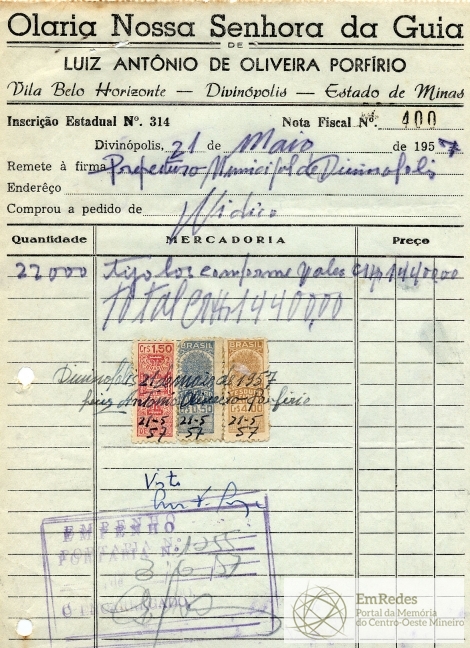 Olaria Nossa Senhora da Guia
DE
LUIZ ANTÔNIO DE OLIVEIRA PORFÍRIO
Vila Belo Horizonte — Divinópolis — Estado de Minas
Inscrição Estadual Nº. 314 Nota Fiscal Nº. 400
Divinópolis, 21 de Maio de 1957
Remete à firma Prefeitura Municipal de Divinopolis
Enderêço
Comprou a pedido de
Quantidade MERCADORIA Preço
22000 tijolos conforme vales Cr$ 14400,00
total Cr$ 14400,00
Cr$1,50 BRASIL BRASIL
Divinopolis 21 de maio de 1957
Luiz Antonio Oliveira Porfirio
21-5 21-5 21-5
57 57 57
Visto
EMPENHO
PORTARIA Nº 1255
EmRedes
Portal da Memória
do Centro-Oeste Mineiro